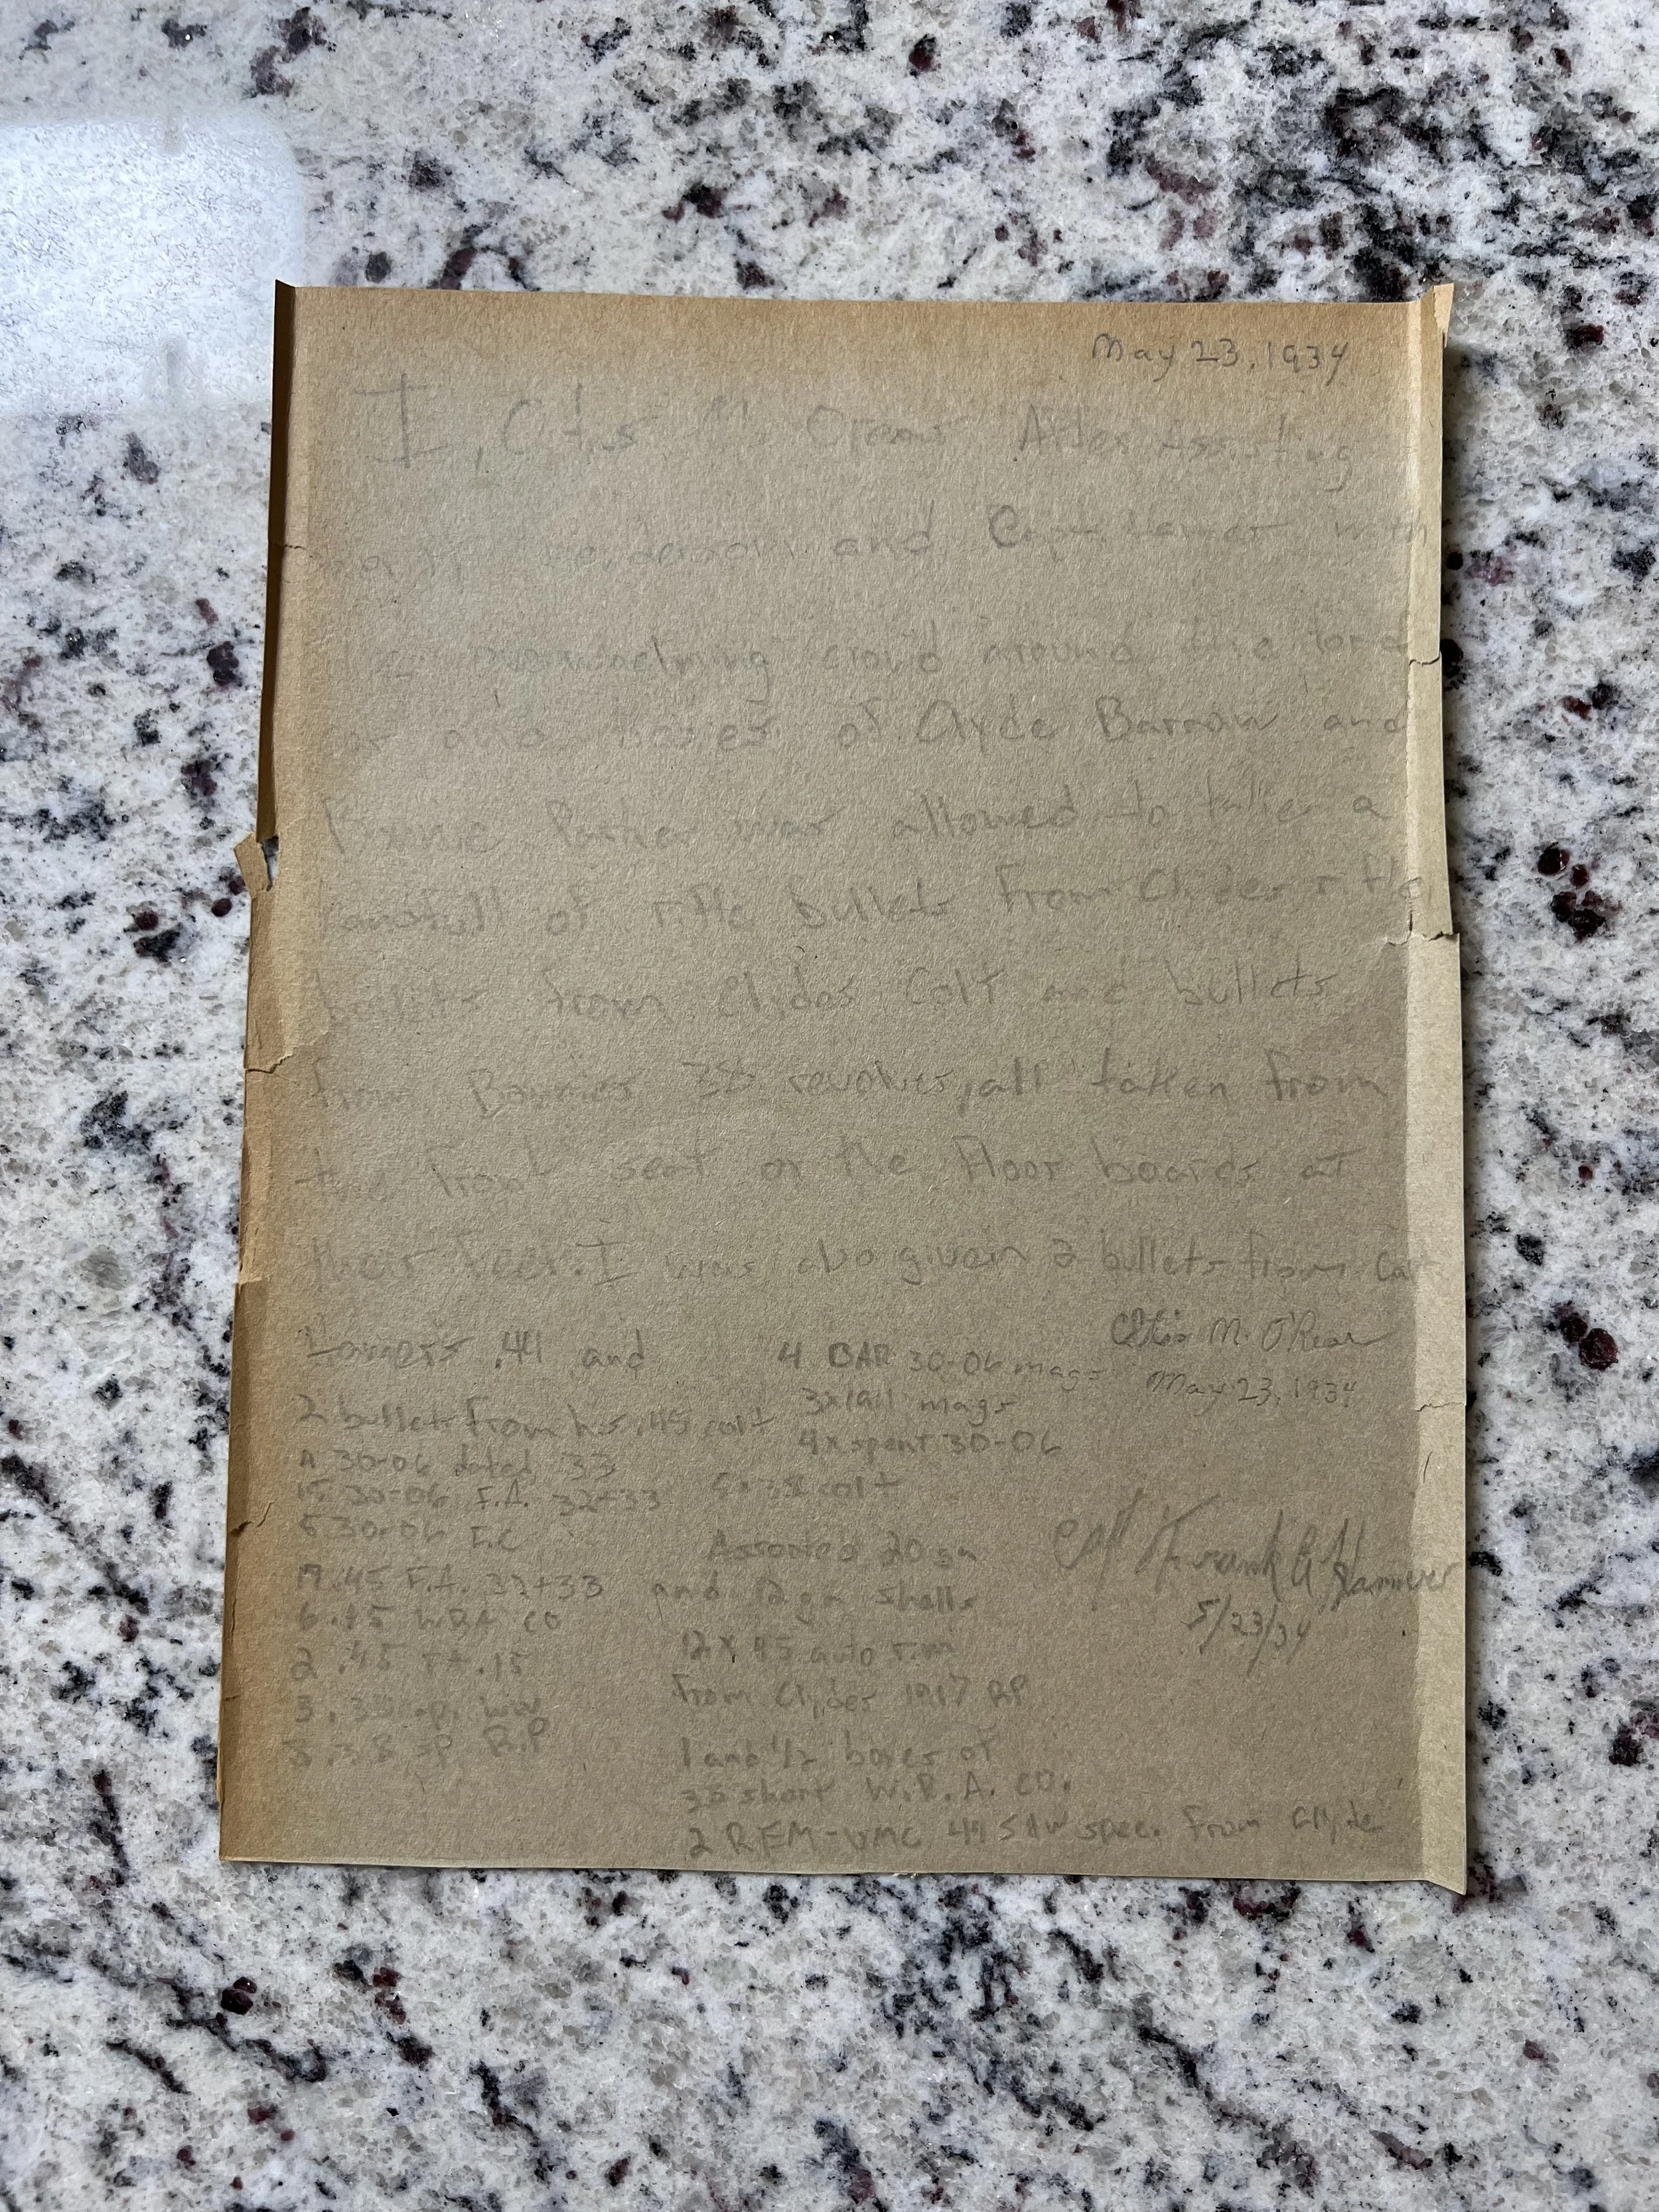 May 23, 1934
I, Otis M After Assisting
and Capt Hamer with
overwhelming crowd around the ford
car and bodies of Clyde Barrow and
Parker was allowed to taken a
handfull of rifle bullets from Clydes rifle
bullets from Clydes Colt and bullets
from Bonnies 38 revolver, all taken from
the front seat or the floor boards at
their feet. I was also given 2 bullets from Capt
Hamers .44 and
2 bullets from his .45 colt
30-06 dated 33
15 30-06 F.A. 32+33
5 30-06 F.C
.45 F.A. 32+33
6 .45 WRA CO
2 .45 FA. 15
3 .38 sp. WW
3 .38 sp R.P
4 BAR 30-06 mags
3x1911 mags
4x spent 30-06
colt
Assorted 20 ga
and 12 ga shells
12 X .45 auto rim
from Clydes 1917 RP
1 and 1/2 boxes of
38 short W.R.A. CO.
2 REM-UMC 44 S&W spec. from Clyde
Otis M. O'Rear
May 23, 1934
Frank A Hamer
5/23/34